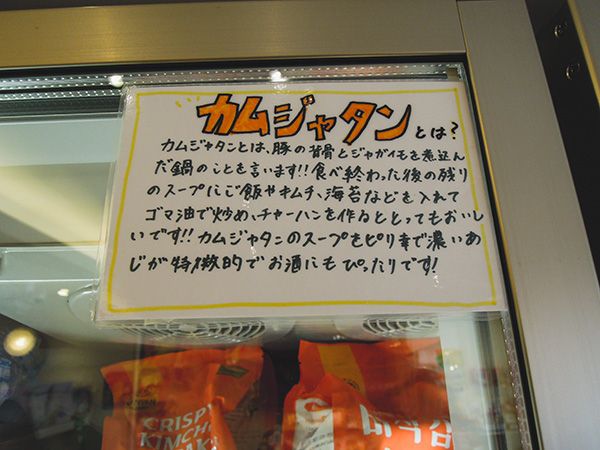 カムジャタンとは?
カムジャタンとは、豚の背骨とジャガイモを煮込ん
だ鍋のことを言います!!食べ終わった後の残り
のスープにご飯やキムチ、海苔などを入れて
ゴマ油で炒め、チャーハンを作るととってもおいし
いです!!カムジャタンのスープをピリ辛で濃いあ
じが特徴的でお酒にもぴったりです!
CRISPY
KIMCH